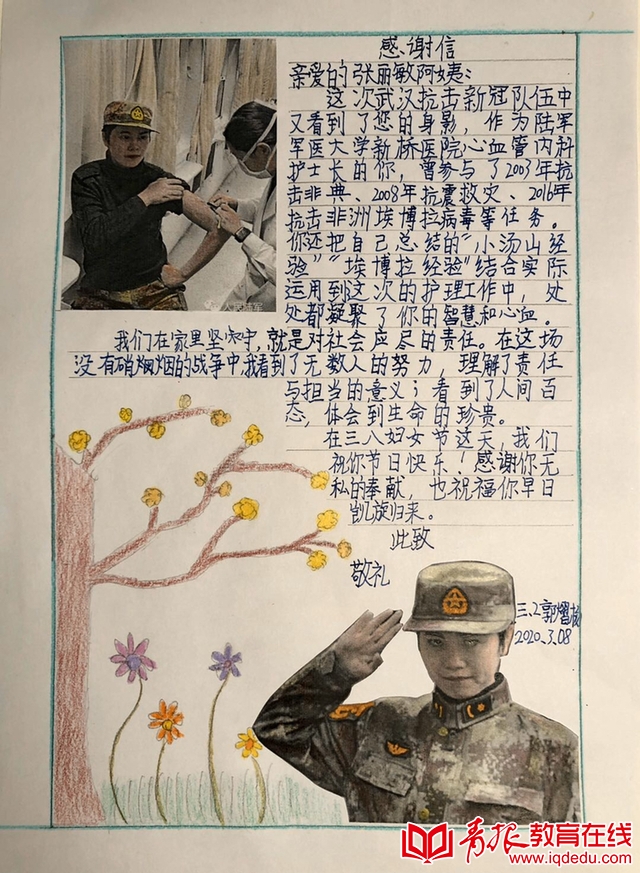 感谢信
亲爱的张丽敏阿姨:
这次武汉抗击新冠队伍中
又看到了您的身影,作为陆军
军医大学新桥医院心血管内科
护士长的你,曾参与了2003年抗
击非典、2008年抗震救灾、2016年
抗击非洲埃博拉病毒等任务。
你还把自己总结的“小汤山经
验”“埃博拉经验”结合实际
运用到这次的护理工作中,处
处都凝聚了你的智慧和心血。
我们在家里坚守,就是对社会应尽的责任。在这场
没有硝烟的战争中,我看到了无数人的努力,理解了责任
与担当的意义;看到了人间百
态,体会到生命的珍贵。
在三八妇女节这天,我们
祝你节日快乐!感谢你无
私的奉献,也祝福你早日
凯旋归来。
此致
敬礼
三.2郭熠
2020.3.08
人民陆军
青报教育在线
www.iqdedu.com